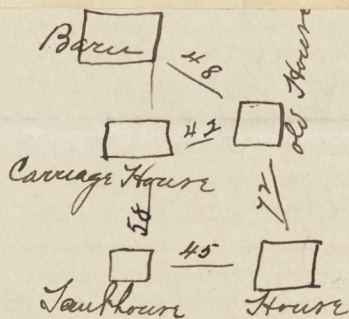 Barn
48
old House
42
Carriage House
58
72
45
Tankhouse
House